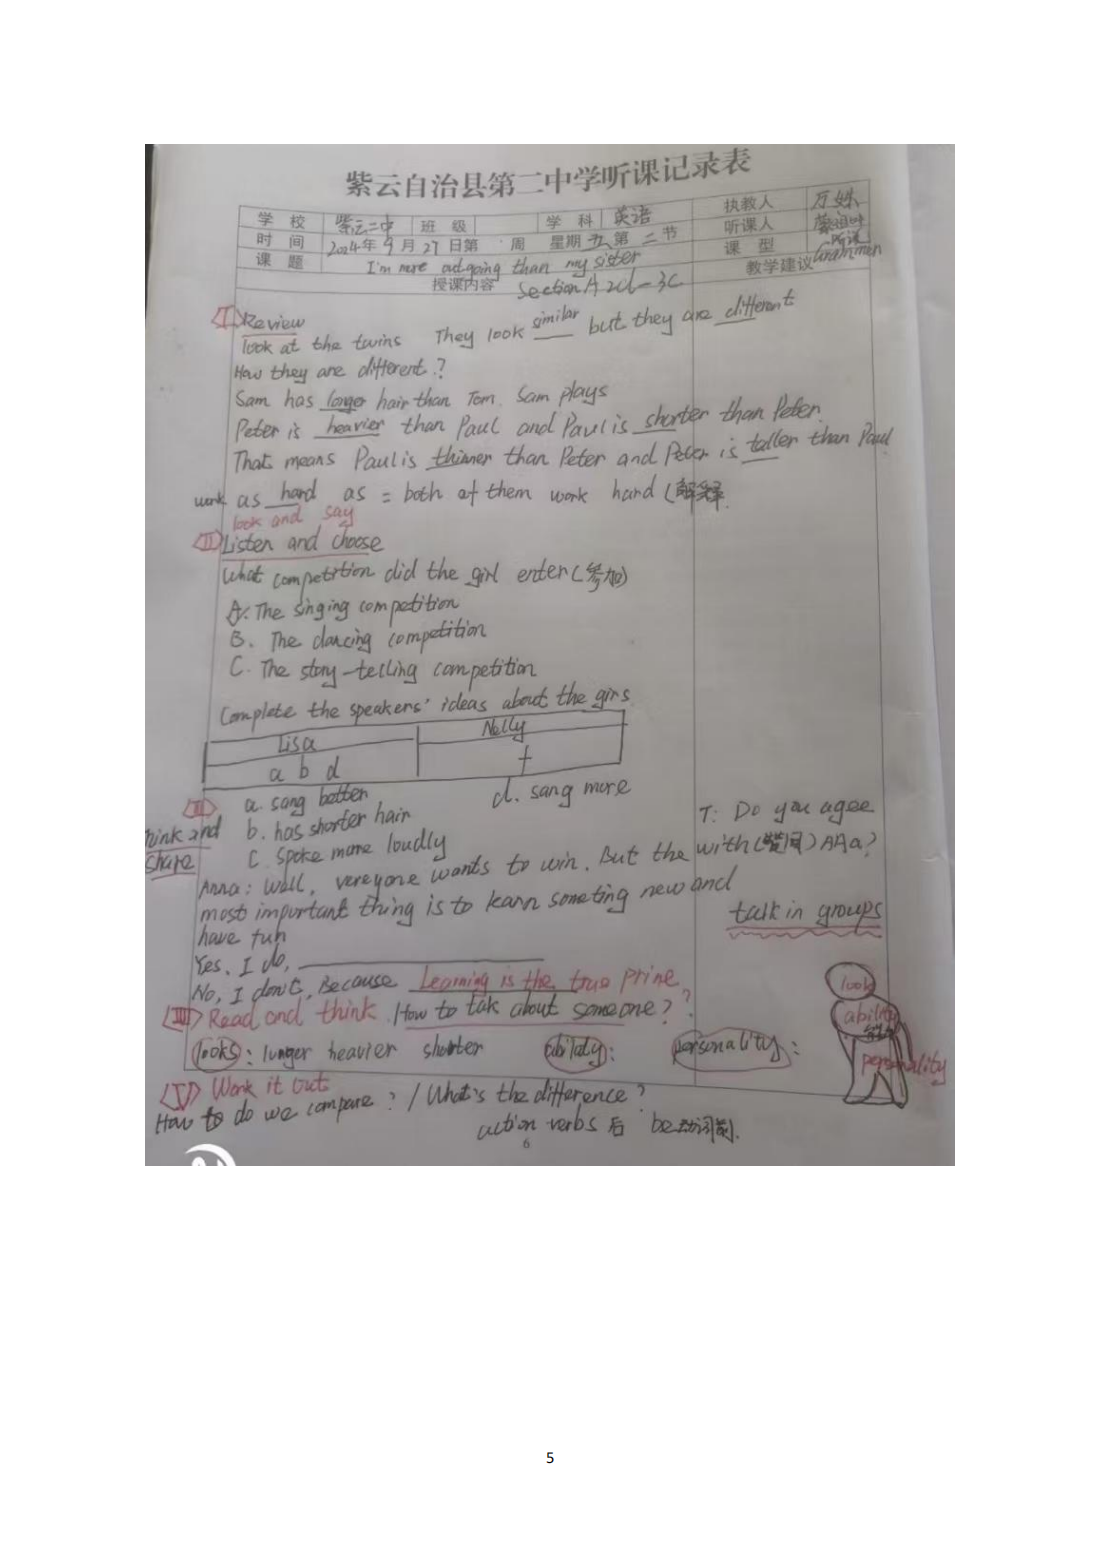 紫云自治县第二中学听课记录表
学 校 紫云二中 班 级 学 科 英语 执教人 万姝
时 间 2024年9月27日第 周 星期五第二节 听课人
课 题 I'm more outgoing than my sister 课 型 听说
授课内容 Section A 2d-3c 教学建议 Grammen
<I>Review
look at the twins They look similar but they are different
How they are different?
Sam has longer hair than Tom. Sam plays
Peter is heavier than Paul and Paul is shorter than Peter.
That means Paul is thinner than Peter and Peter is taller than Paul
work as hard as = both of them work hard (解释
look and say
<II>Listen and choose
What competition did the girl enter(参加)
A. The singing competition
B. The dancing competition
C. The story-telling competition
Complete the speakers' ideas about the girs
Lisa Nelly
a b d f
<II> a. sang better d. sang more
hink and b. has shorter hair
share C. Spoke more loudly
T: Do you agee
with(赞同)AAa?
Anna: Well, vereyone wants to win. But the
most important thing is to learn someting new and
have fun
talk in groups
Yes, I do,
No, I don't, Because Learning is the true prine
<III> Read and think /How to tak about someone?
looks: lunger heavier shorter abilaty: personality:
look
ability
personality
<V> Work it out
How to do we compare? / What's the difference?
action verbs 后 be动词前.
6
5